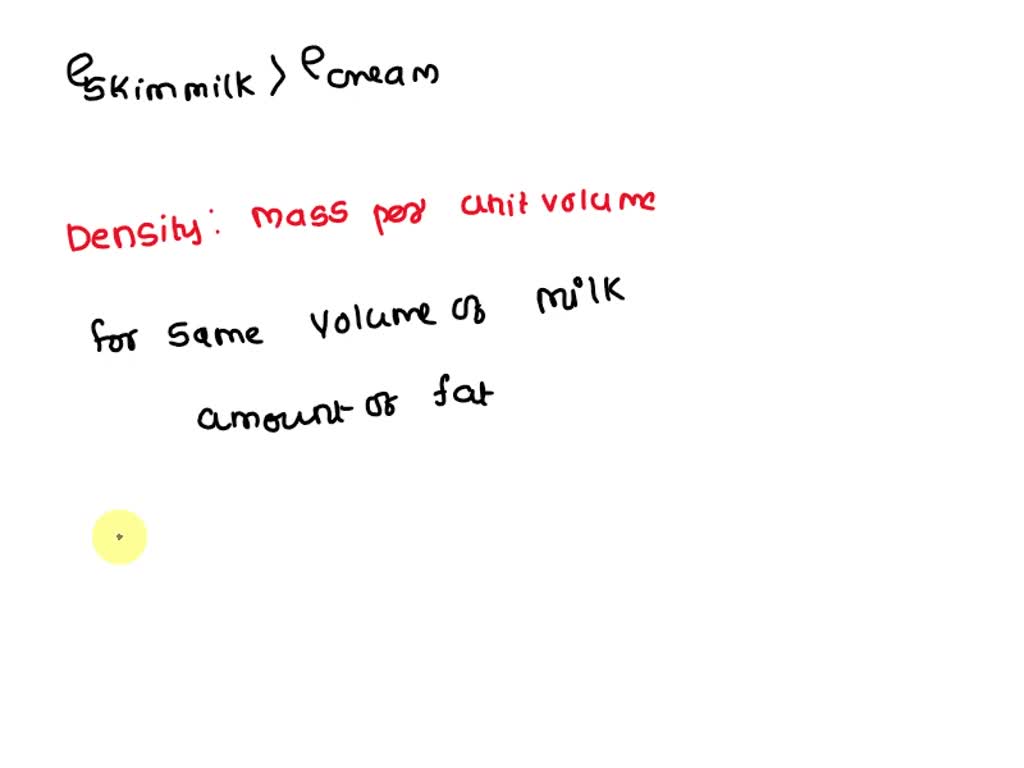 ρskimmilk > ρcream
Density: mass per unit volume
for same volume of milk
amount of fat